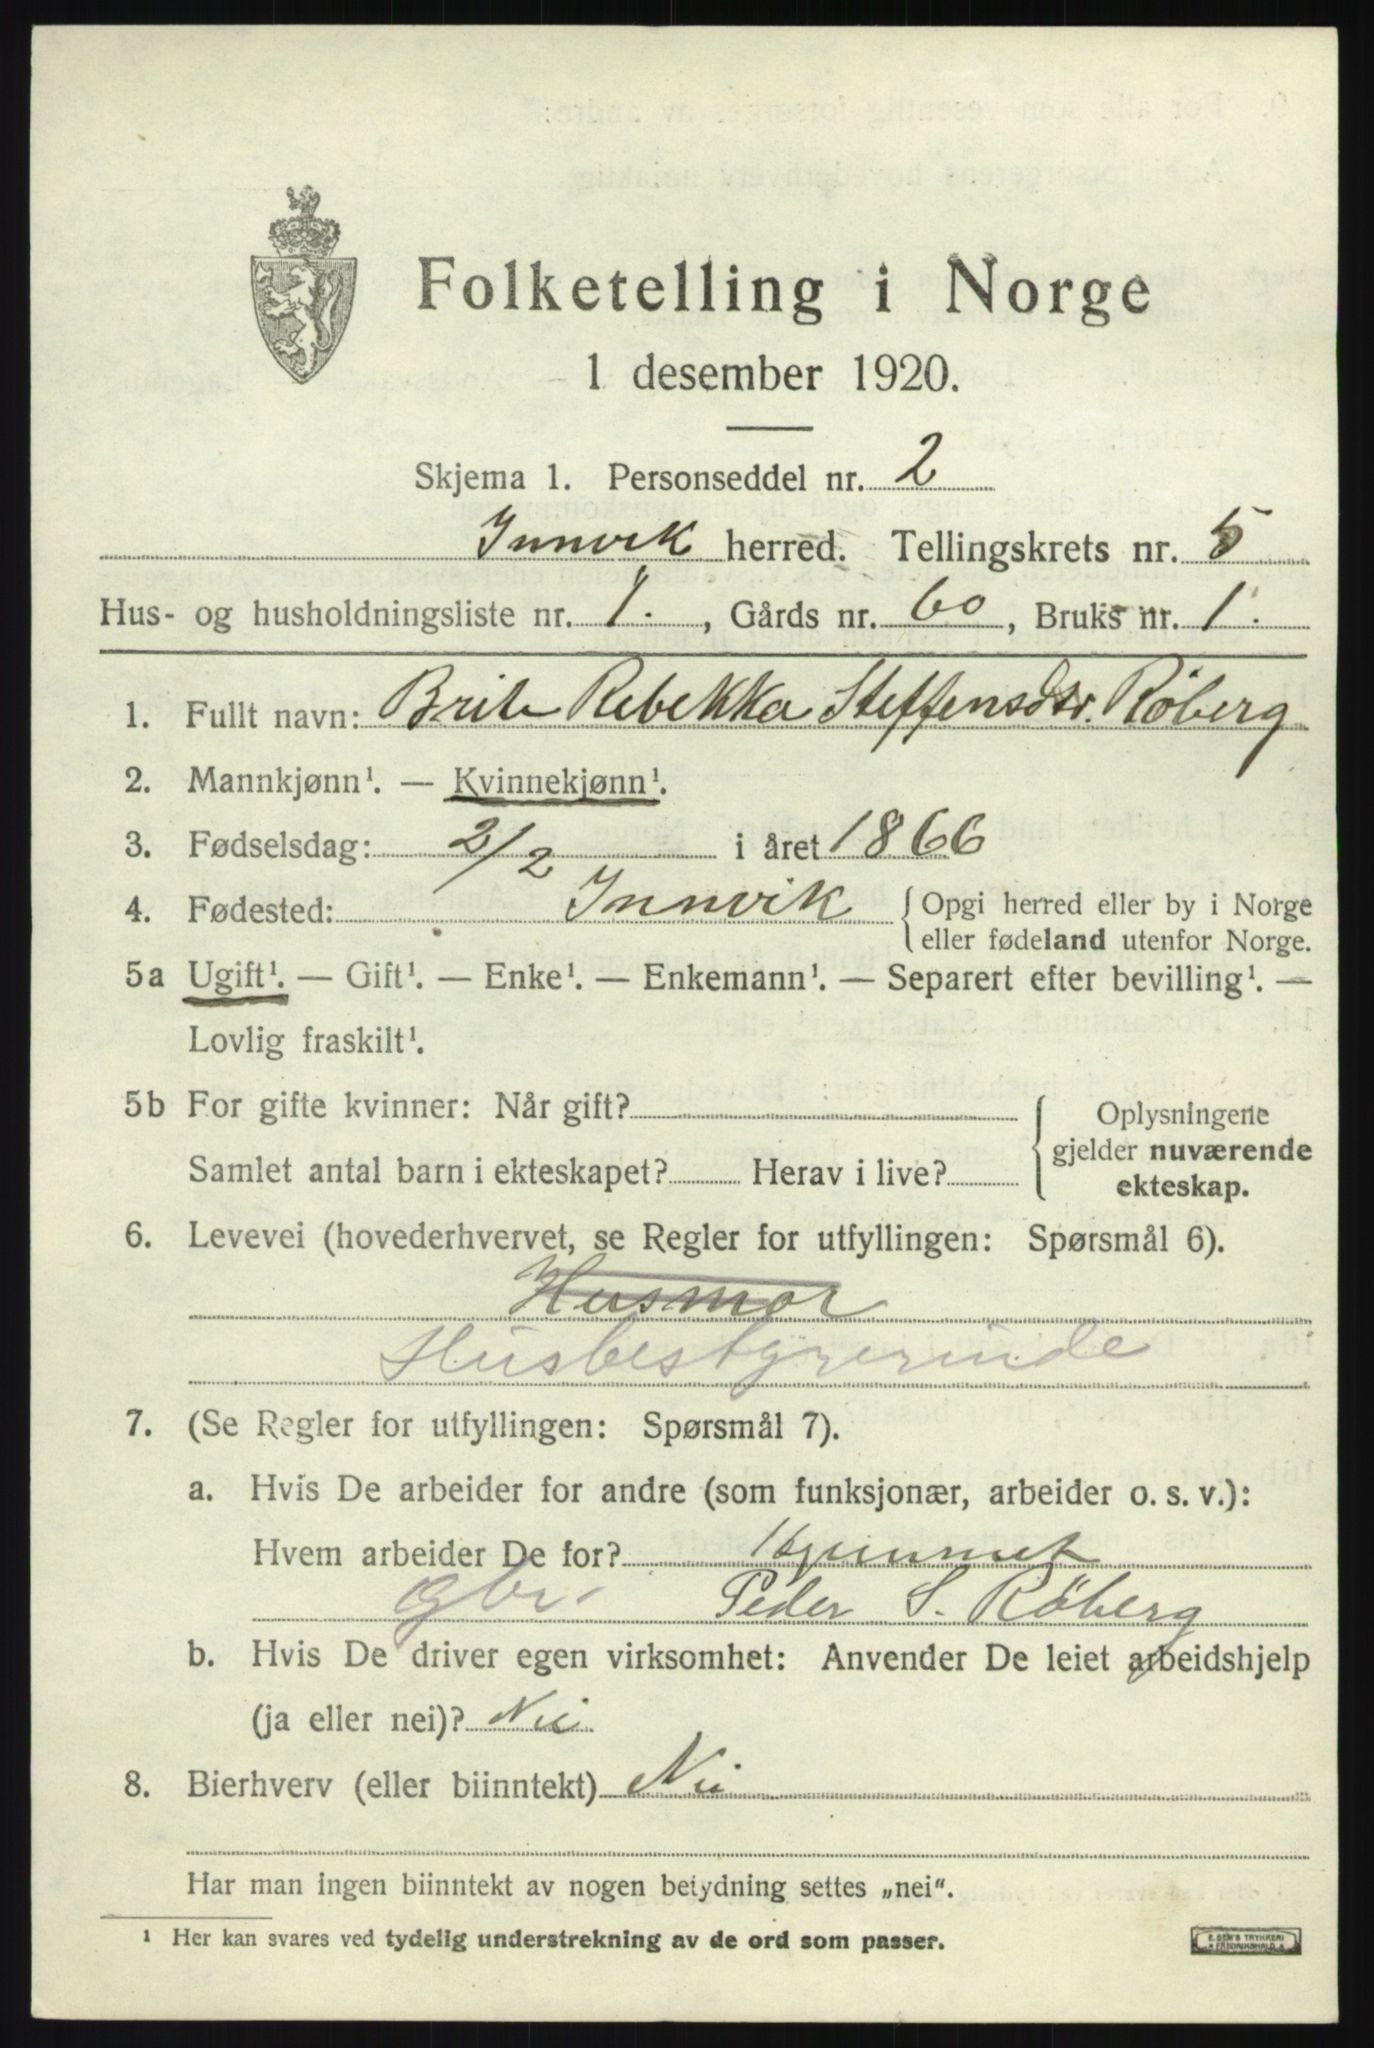 Folketelling i Norge
1 desember 1920.
Skjema 1. Personseddel nr. 2
Innvik herred. Tellingskrets nr. 5
Hus- og husholdningsliste nr. 1. , Gårds nr. 60 , Bruks nr. 1.
1. Fullt navn: Brite Rebekka Steffensdtr. Røberg
2. Mannkjønn¹. — Kvinnekjønn¹.
3. Fødselsdag: 2/2 i året 1866
4. Fødested: Innvik { Opgi herred eller by i Norge
eller fødeland utenfor Norge.
5a Ugift¹. — Gift¹. — Enke¹. — Enkemann¹. — Separert efter bevilling¹. —
Lovlig fraskilt¹.
5b For gifte kvinner: Når gift?
Samlet antal barn i ekteskapet? Herav i live?
{ Oplysningene
gjelder nuværende
ekteskap.
6. Levevei (hovederhvervet, se Regler for utfyllingen: Spørsmål 6).
Husmor
Husbestyrerinde
7. (Se Regler for utfyllingen: Spørsmål 7).
a. Hvis De arbeider for andre (som funksjonær, arbeider o. s. v.):
Hvem arbeider De for? Hjemmet
gbr. Peder S. Röberg
b. Hvis De driver egen virksomhet: Anvender De leiet arbeidshjelp
(ja eller nei)? Nei
8. Bierhverv (eller biinntekt) Nei
Har man ingen biinntekt av nogen betydning settes „nei“.
¹ Her kan svares ved tydelig understrekning av de ord som passer.
E. SEM'S TRYKKERI
FREDRIKSHALD